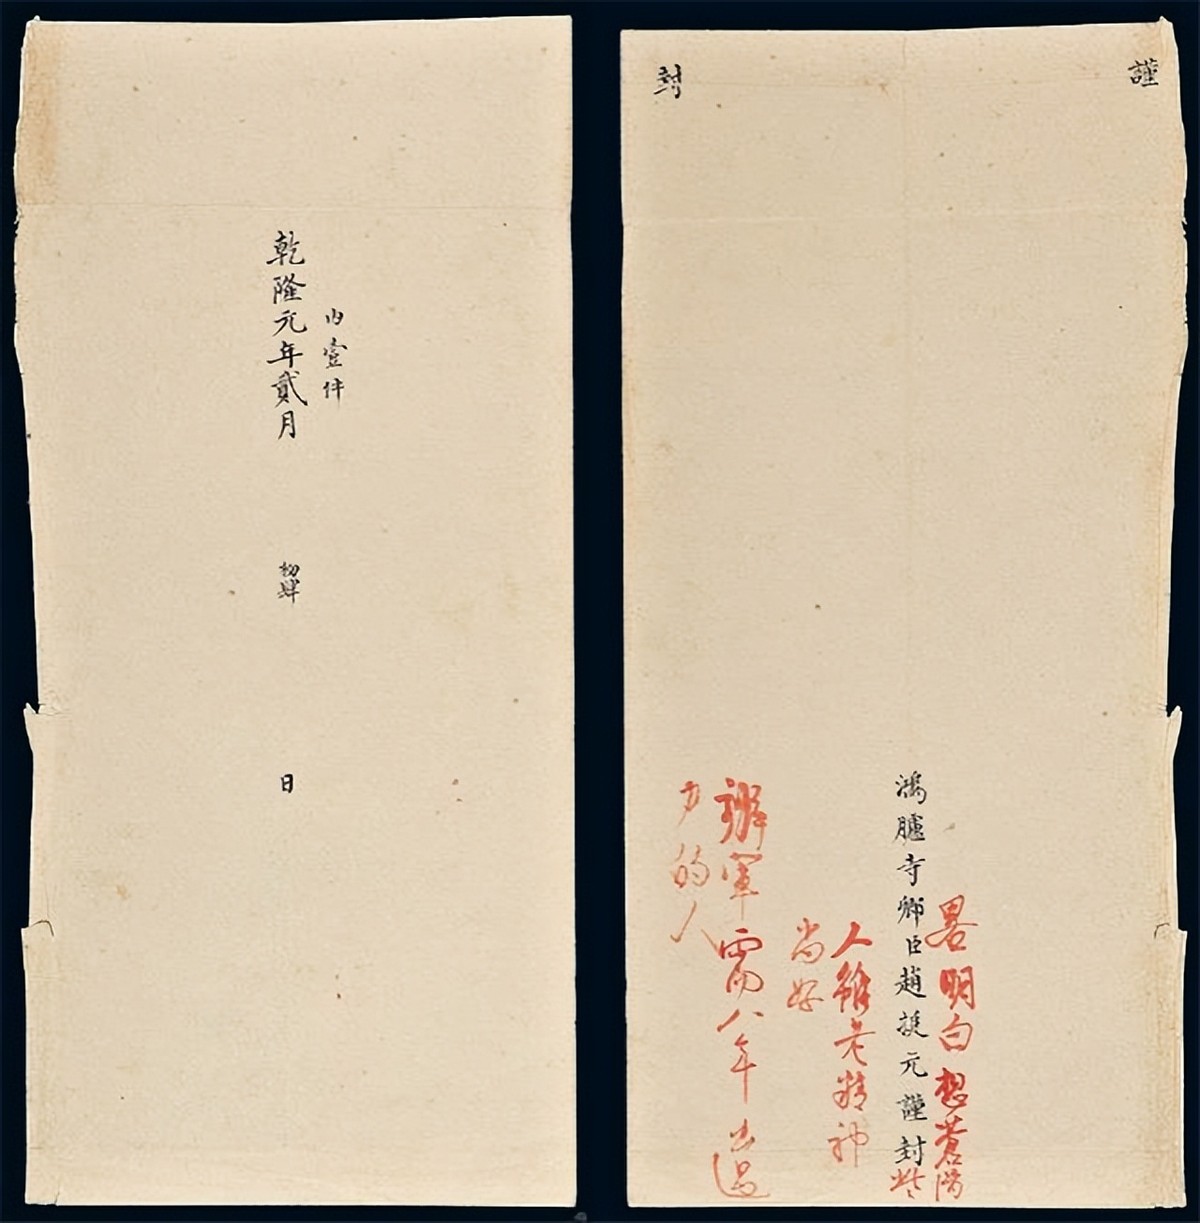 内壹件
乾隆元年貳月初肆日
謹
封
畧明白想蒼
些
鴻臚寺卿臣趙挺元謹封
人雖老精神
尚好
辦軍需八年出過
力的人